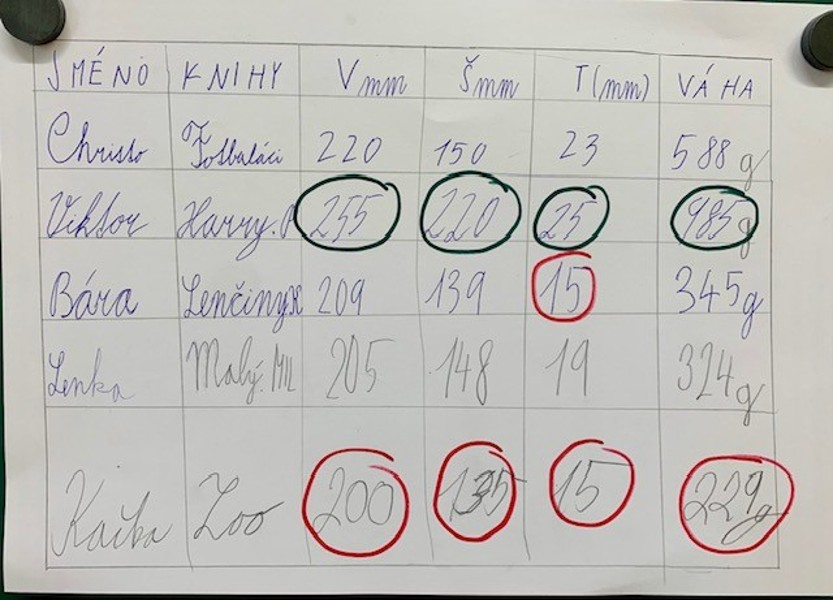 JMÉNO KNIHY Vmm Šmm T(mm) VÁHA
Christo Fotbaláci 220 150 23 588g
Viktor Harry.P 255 220 25 985g
Bára Lenčiny 209 139 15 345g
Lenka Malý. 205 148 19 324g
Kačka Zoo 200 135 15 229g